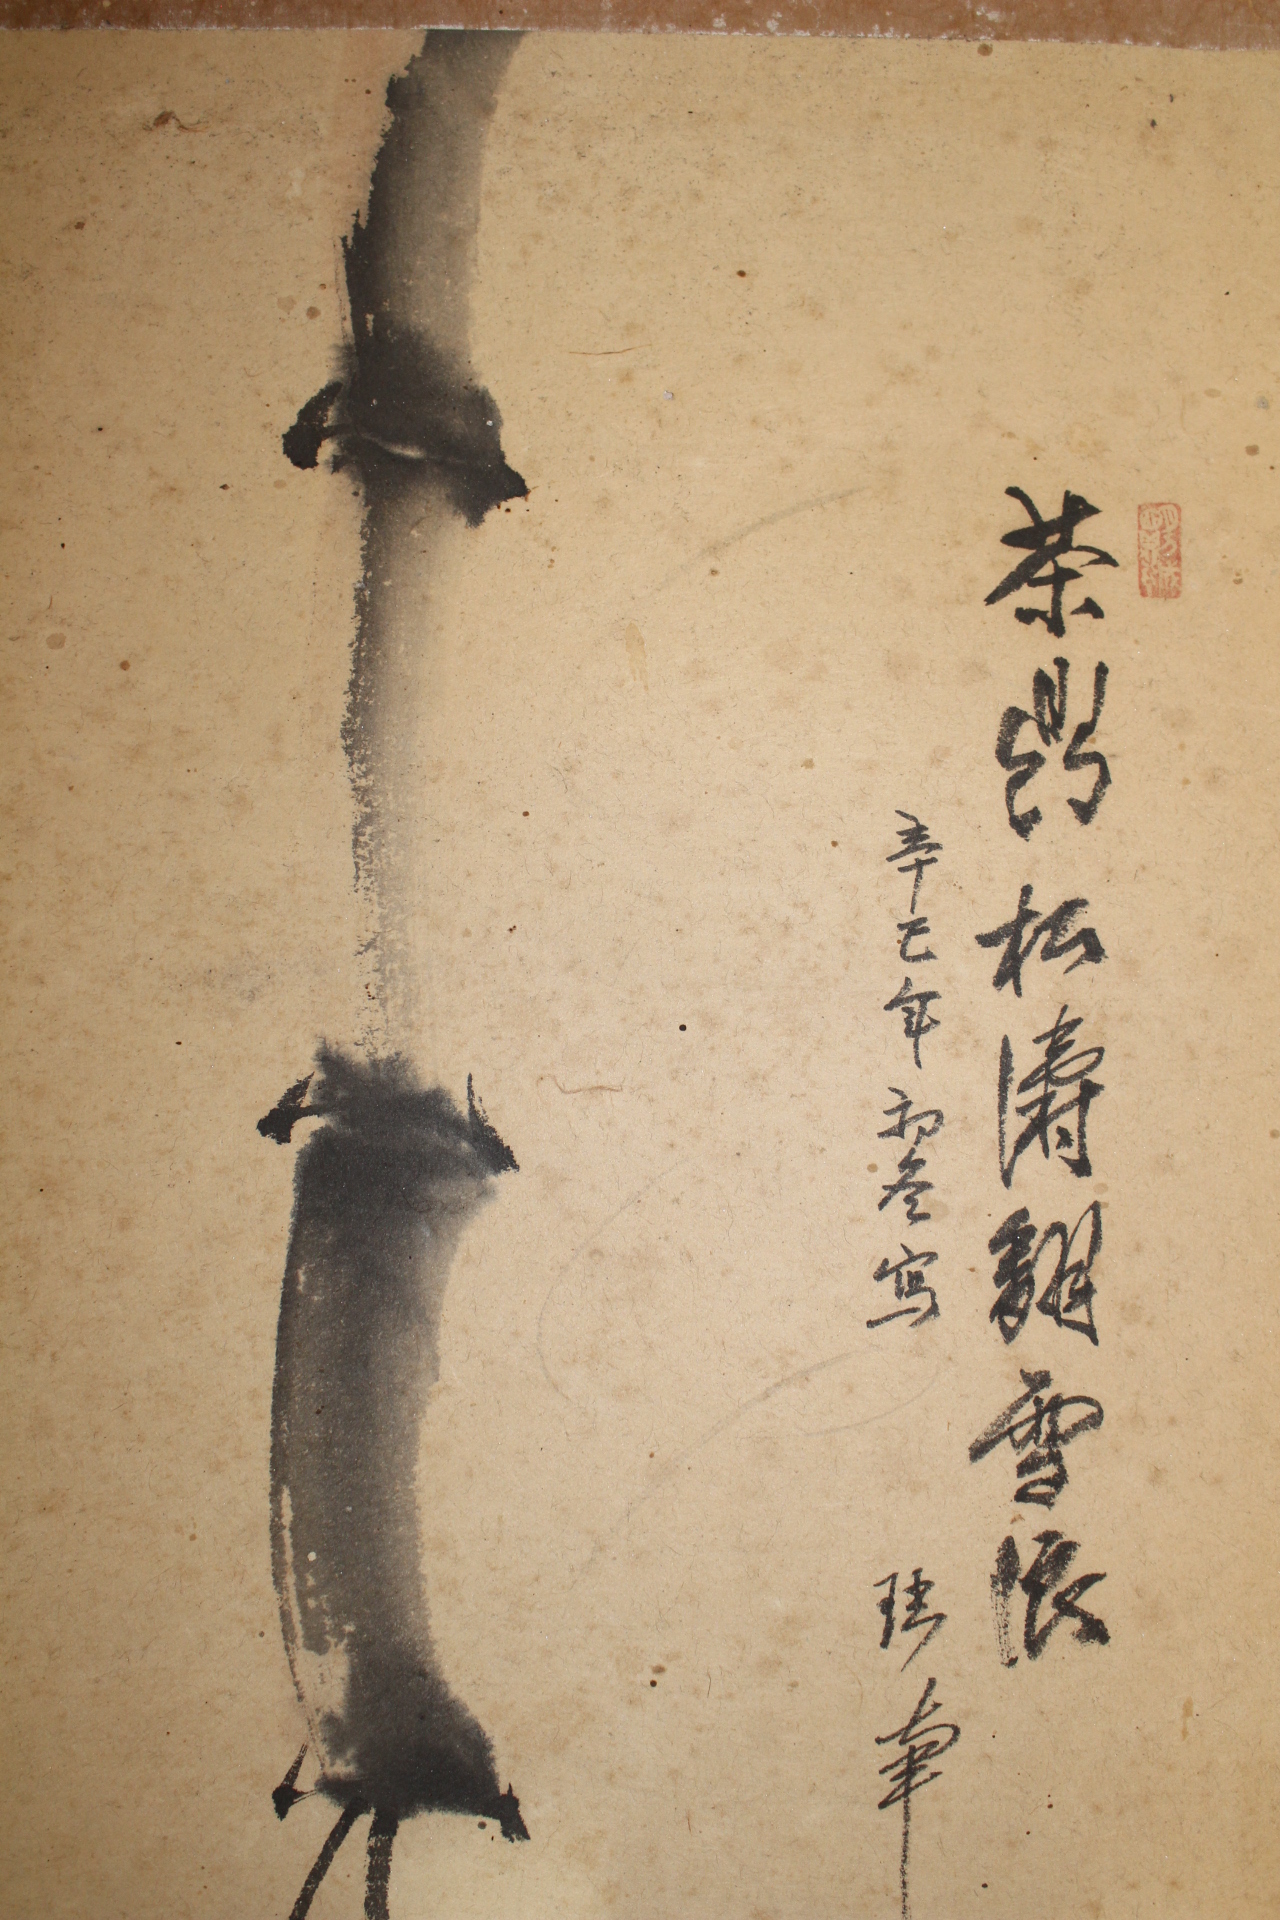 茶鼎松濤翻雪浪
辛巳年初冬寫